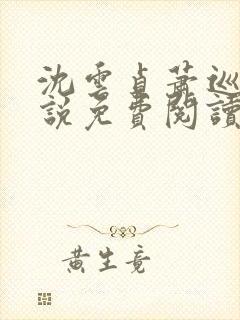 沈雲貞蕭巡
說免費閱讀
黃生竟